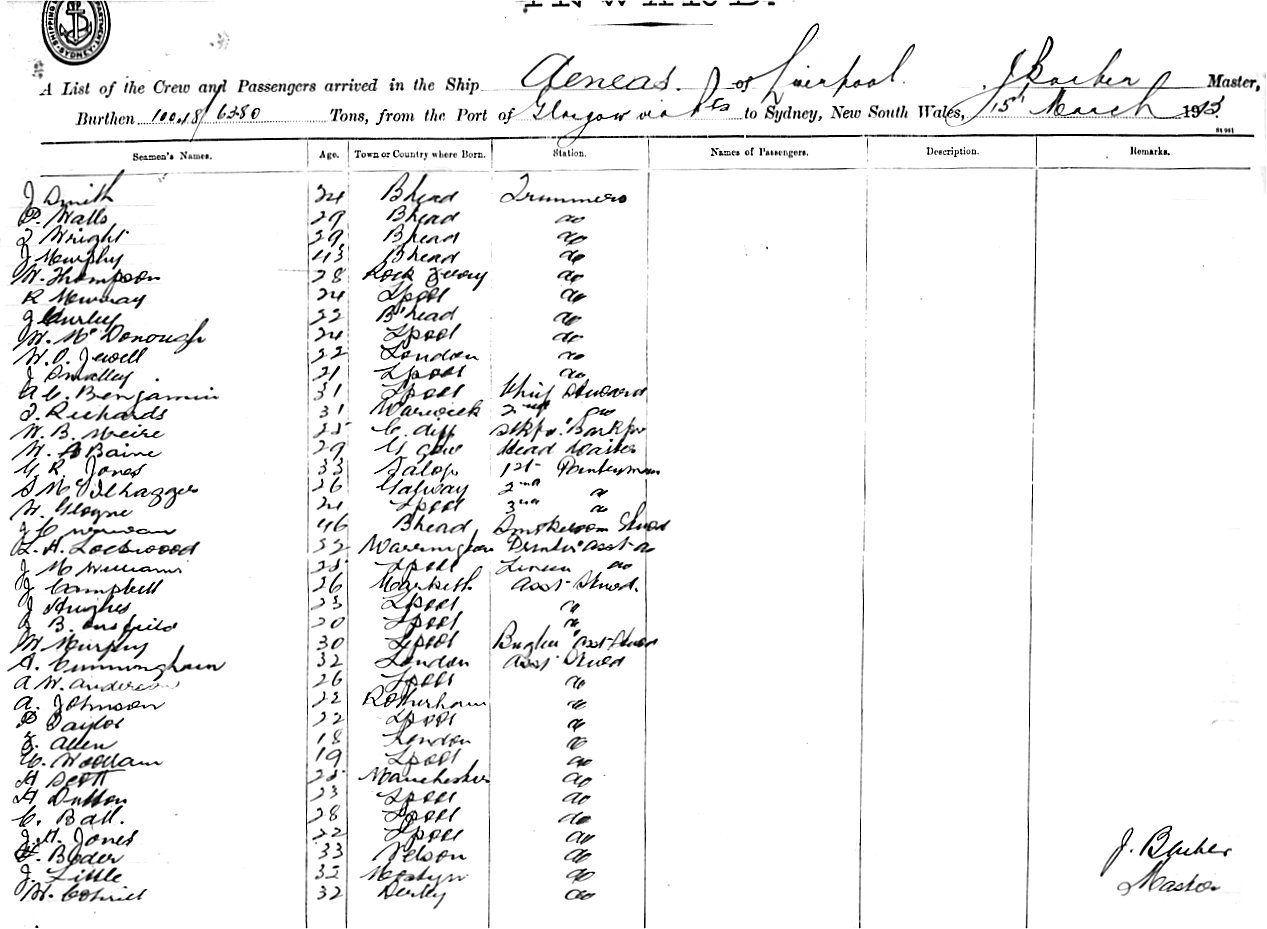 INWARD.
SHIPPING SYDNEY
A List of the Crew and Passengers arrived in the Ship Aeneas. of Liverpool. J Barber Master,
Burthen 10048/6380 Tons, from the Port of Glasgow via to Sydney, New South Wales, 15th March 1913
Seamen's Names. Age. Town or Country where Born. Station. Names of Passengers. Description. Remarks.
J Smith 24 Bhead Trimmers
P. Walls 29 Bhead do
T Wright 29 Bhead do
J Murphy 43 Bhead do
W. Thompson 28 Rock Ferry do
R Murray 24 Lpool do
J Curley 22 B'head do
W. McDonough 24 Lpool do
W. O. Jewell 22 London do
J Smalley 21 Lpool do
A C. Benjamin 31 Lpool Chief Steward
T. Richards 31 Warwick 2nd do
W. B. Meire 25 C. diff Stkpr. Barkpr
W. A Baine 29 G gow Head Waiter
G R. Jones 33 Salop 1st Pantryman
S McIlhagger 26 Galway 2nd "
W. Gloyne 24 Lpool 3rd "
J 46 Bhead Smokeroom Stwd
L. H. Lockwood 32 Warrington Printer asst do
J McWilliams 25 Lpool Linen do
J Campbell 26 asst Stwd.
J Hughes 23 Lpool "
J B. 20 Lpool "
W Murphy 30 Lpool Bugler asst Stwd
A. Cunningham 32 London asst Stwd
A W. Anderson 26 Lpool "
A. Johnson 22 Rotherham "
P Taylor 22 Lpool "
F. Allen 18 London "
C. Woollam 19 Lpool do
H Scott 25 Manchester do
H Dutton 23 Lpool do
C. Ball. 28 Lpool do
J. H. Jones 22 Lpool do
F. Boder 33 Nelson do J. Barber
J. Little 32 Mostyn do Master
W. 32 Derby do